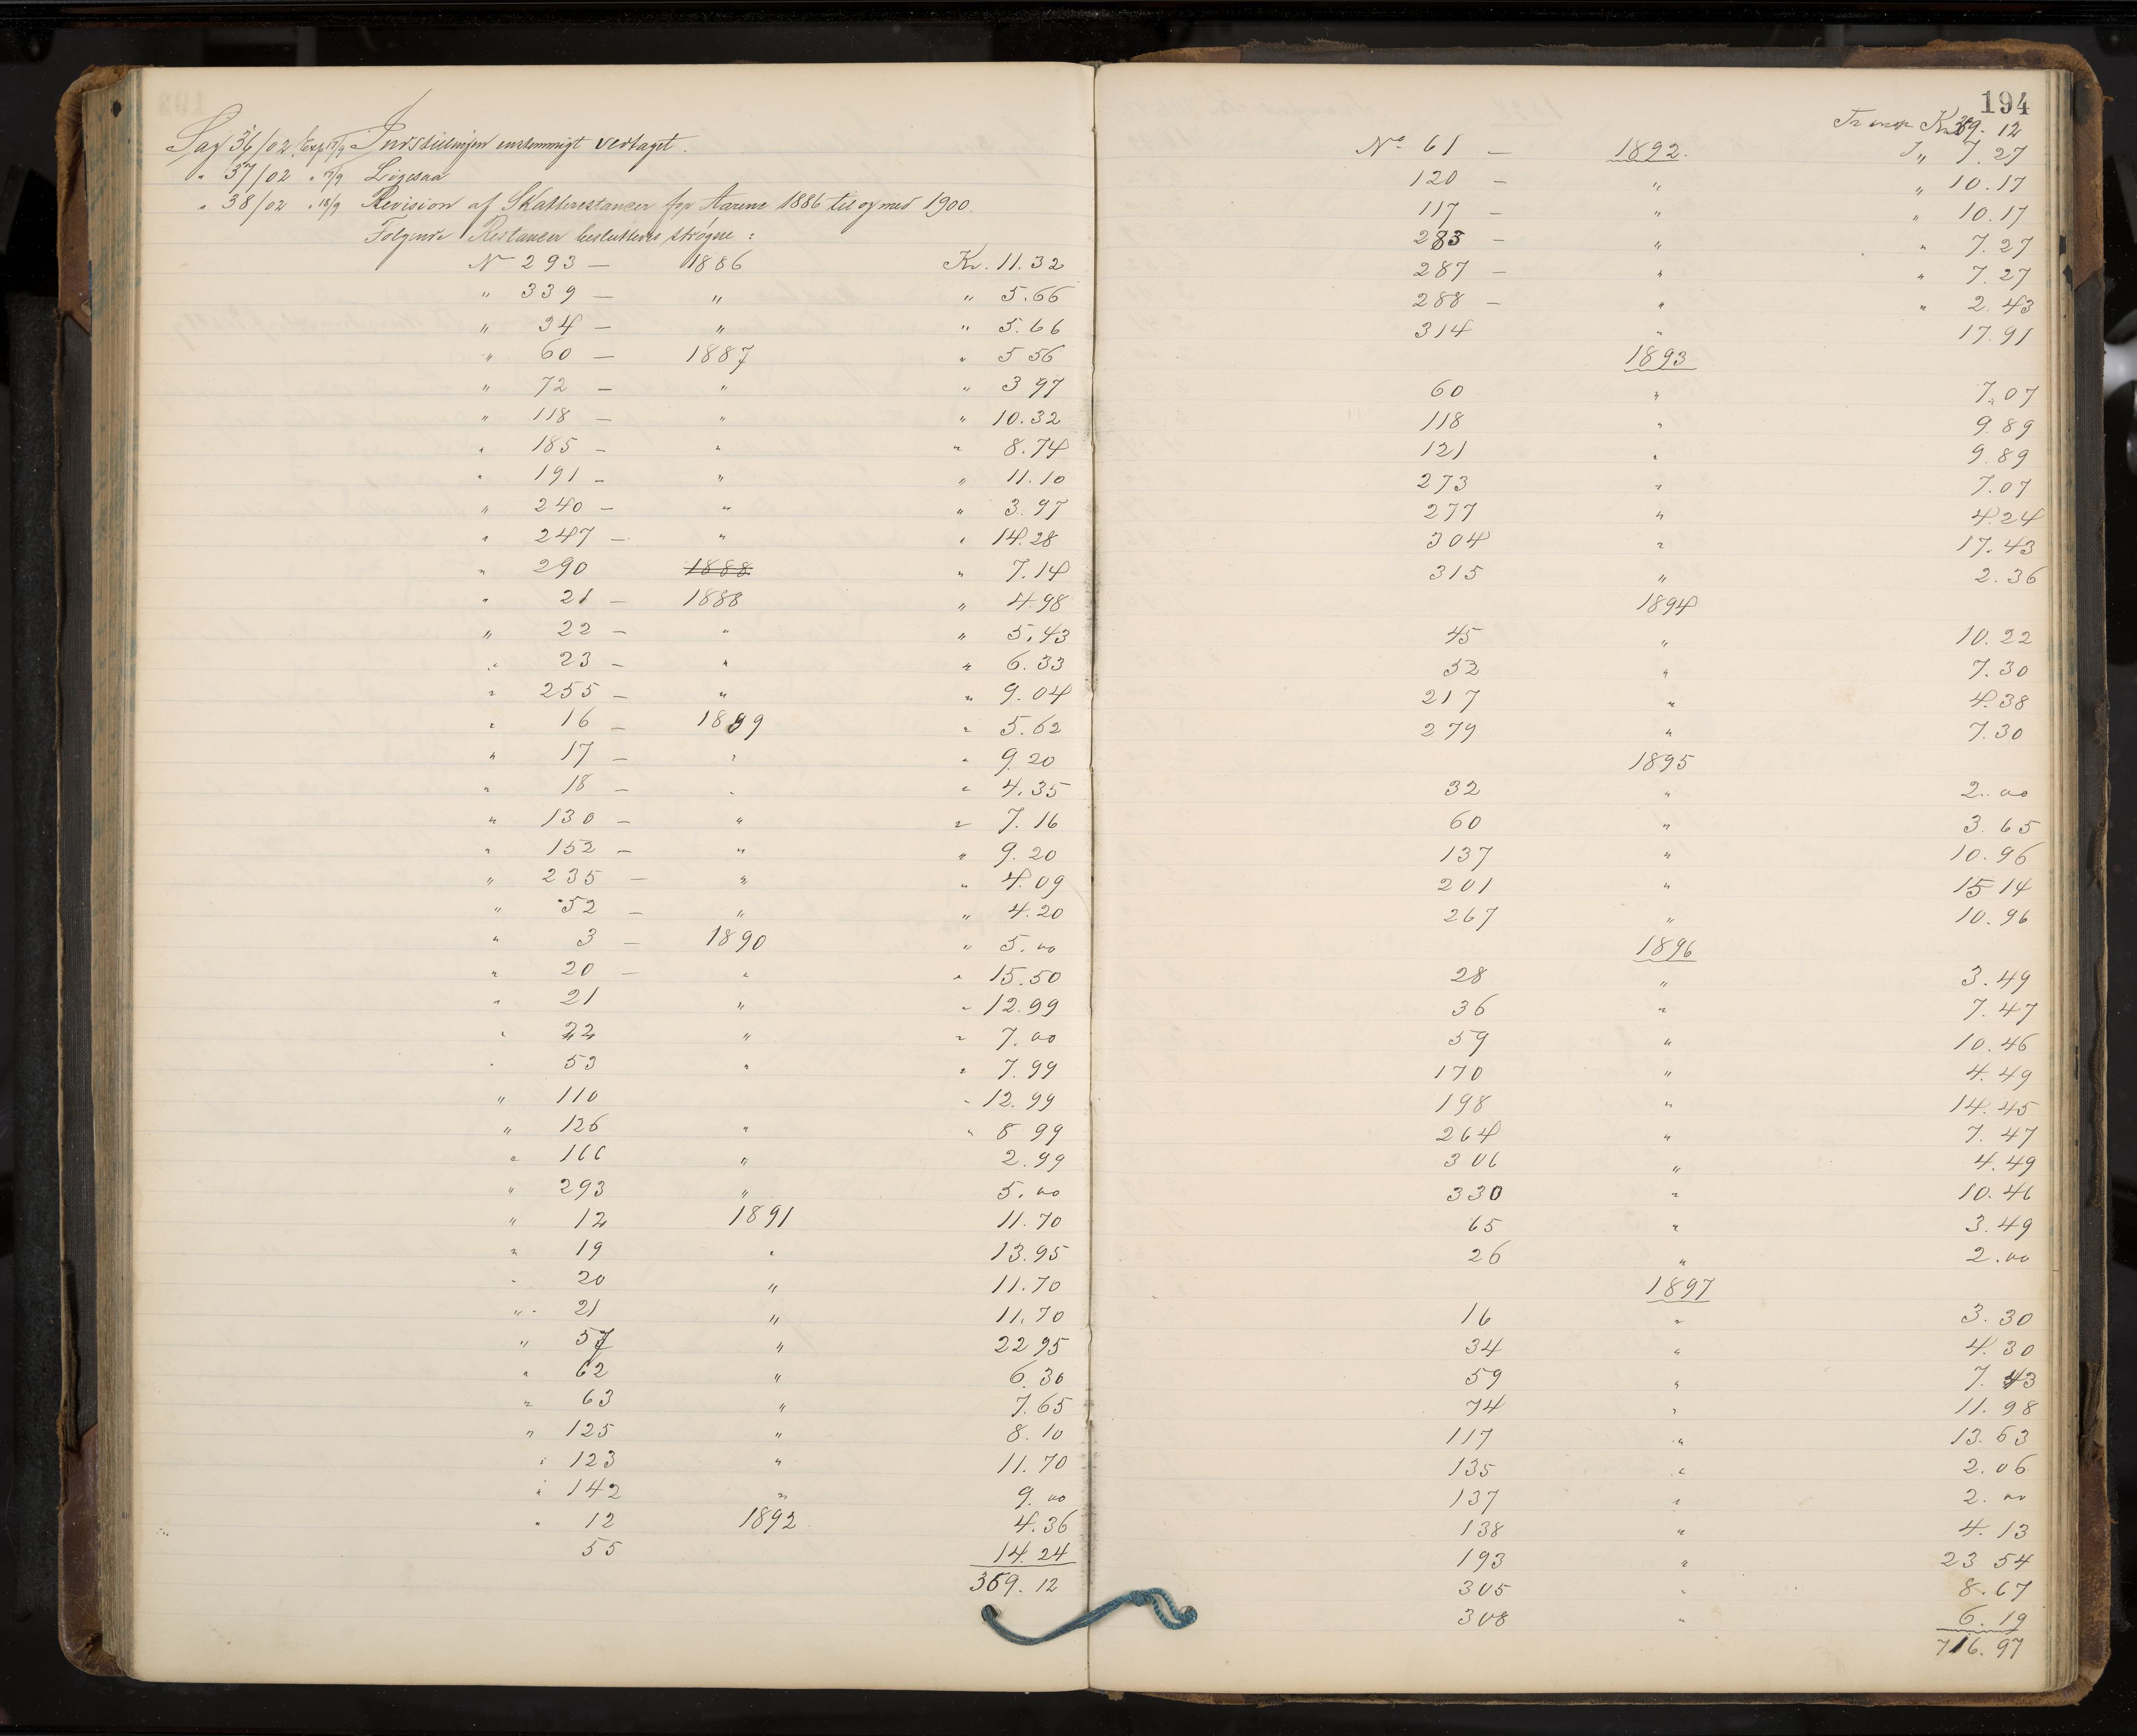 Sag 36/02 Exp 17/9 Indstillingen enstemmigt vedtaget.
" 37/02 " 17/9 Ligesaa
" 38/02 " 18/9 Revision af Skatterestancer for Aarene 1886 til og med 1900.
Følgende Restancer besluttedes strøgne :
No 293 — 1886 Kr. 11.32
" 339 — " " 5.66
" 34 — " " 5.66
" 60 — 1887 " 5 56
" 72 — " " 3 97
" 118 — " " 10.32
" 185 — " " 8.74
" 191 — " " 11.10
" 240 — " " 3.97
" 247 — " " 14.28
" 290 1888 " 7.14
" 21 — 1888 " 4.98
" 22 — " " 5.43
" 23 — " " 6.33
" 255 — " " 9.04
" 16 — 1889 " 5.62
" 17 — " " 9.20
" 18 — " " 4.35
" 130 — " " 7.16
" 152 — " " 9.20
" 235 — " " 4.09
" 52 — " " 4.20
" 3 — 1890 " 5.00
" 20 — " " 15.50
" 21 " " 12.99
" 22 " " 7.00
" 53 " " 7.99
" 110 " 12.99
" 126 " " 8 99
" 166 " 2.99
" 293 " 5.00
" 12 1891 11.70
" 19 " 13.95
" 20 " 11.70
" 21 " 11.70
" 57 " 22 95
" 62 " 6.30
" 63 " 7.65
" 125 " 8.10
" 123 " 11.70
" 142 " 9.00
" 12 1892 4.36
55 14.24
369.12
194
Transp Kr 369.12
No 61 — 1892. " 7.27
120 — " " 10.17
117 — " " 10.17
285 — " " 7.27
287 — " " 7.27
288 — " " 2.43
314 " 17.91
1893
60 " 7.07
118 " 9.89
121 " 9.89
273 " 7.07
277 " 4.24
304 " 17.43
315 " 2.36
1894
45 " 10.22
52 " 7.30
217 " 4.38
279 " 7.30
1895
32 " 2.00
60 " 3.65
137 " 10.96
201 " 15 14
267 " 10.96
1896
28 " 3.49
36 " 7.47
59 " 10.46
170 " 4.49
198 " 14.45
264 " 7.47
306 " 4.49
330 " 10.46
65 " 3.49
26 " 2.00
1897
16 " 3.30
34 " 4.30
59 " 7.43
74 " 11.98
117 " 13.63
135 " 2.06
137 " 2.00
138 " 4.13
193 " 23 54
305 " 8.67
308 " 6.19
716.97